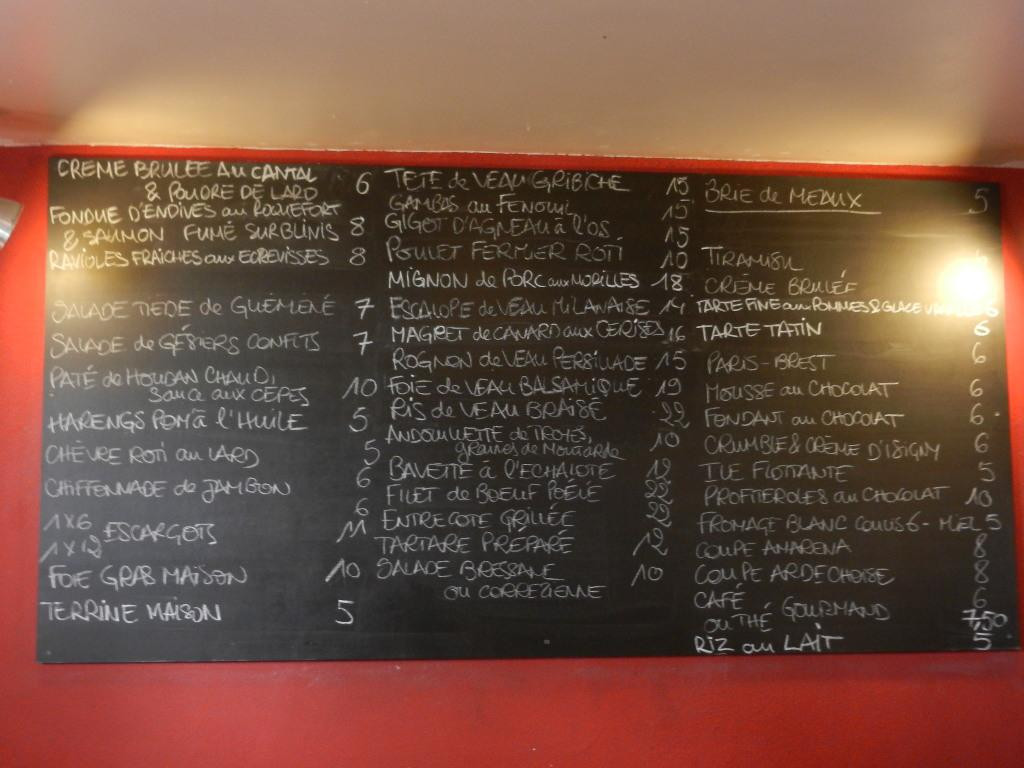 CREME BRULEE Au CANTAL
& POUDRE DE LARD 6
FONDUE D'ENDIVES au ROQUEFORT
& SAUMON FUMÉ SUR BLINIS 8
RAVIOLES FRAICHES aux ECREVISSES 8
SALADE TIEDE de GUÉMÉNÉ 7
SALADE de GÉSIERS CONFITS 7
PATÉ de HOUDAN CHAUD,
sauce aux CÈPES 10
HARENGS POM à l'HUILE 5
CHÈVRE ROTI au LARD 5
CHIFFENNADE de JAMBON 6
1x6 ESCARGOTS 6
1x12 11
FOIE GRAS MAISON 10
TERRINE MAISON 5
TETE de VEAU GRIBICHE 15
GAMBAS au FENOUIL 15
GIGOT D'AGNEAU à l'OS 15
POULET FERMIER ROTI 10
MIGNON de PORC aux MORILLES 18
ESCALOPE de VEAU MILANAISE 14
MAGRET de CANARD aux CERISES 16
ROGNON de VEAU PERSILLADE 15
FOIE de VEAU BALSAMIQUE 19
RIS de VEAU BRAISÉ 22
ANDOUILLETTE de TROYES, 10
graines de Moutarde
BAVETTE à L'ECHALOTE 12
FILET de BOEUF POÊLÉ 22
ENTRECOTE GRILLÉE 22
TARTARE PREPARÉ 12
SALADE BRESSANE 10
ou CORREZIENNE
BRIE de MEAUX 5
TIRAMISU
CRÈME BRULÉE
TARTE FINE aux POMMES & GLACE 6
TARTE TATIN 6
PARIS-BREST 6
MOUSSE au CHOCOLAT 6
FONDANT au CHOCOLAT 6
CRUMBLE & CRÈME D'ISIGNY 6
ILE FLOTTANTE 5
PROFITEROLES au CHOCOLAT 10
FROMAGE BLANC COULIS 6 - MIEL 5
COUPE AMARENA 8
COUPE ARDECHOISE 8
CAFÉ 6
ou THÉ GOURMAND 7,50
RIZ au LAIT 5